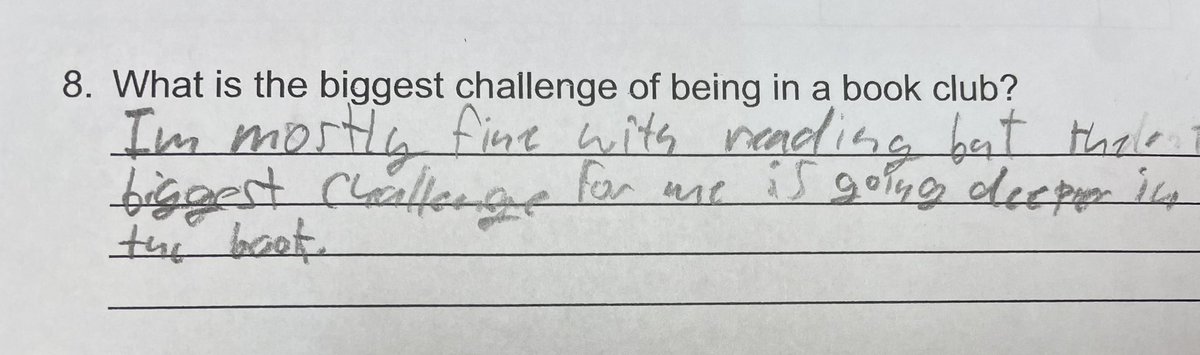 8. What is the biggest challenge of being in a book club?
Im mostly fine with reading but
biggest challenge for me is going deeper in
the book.